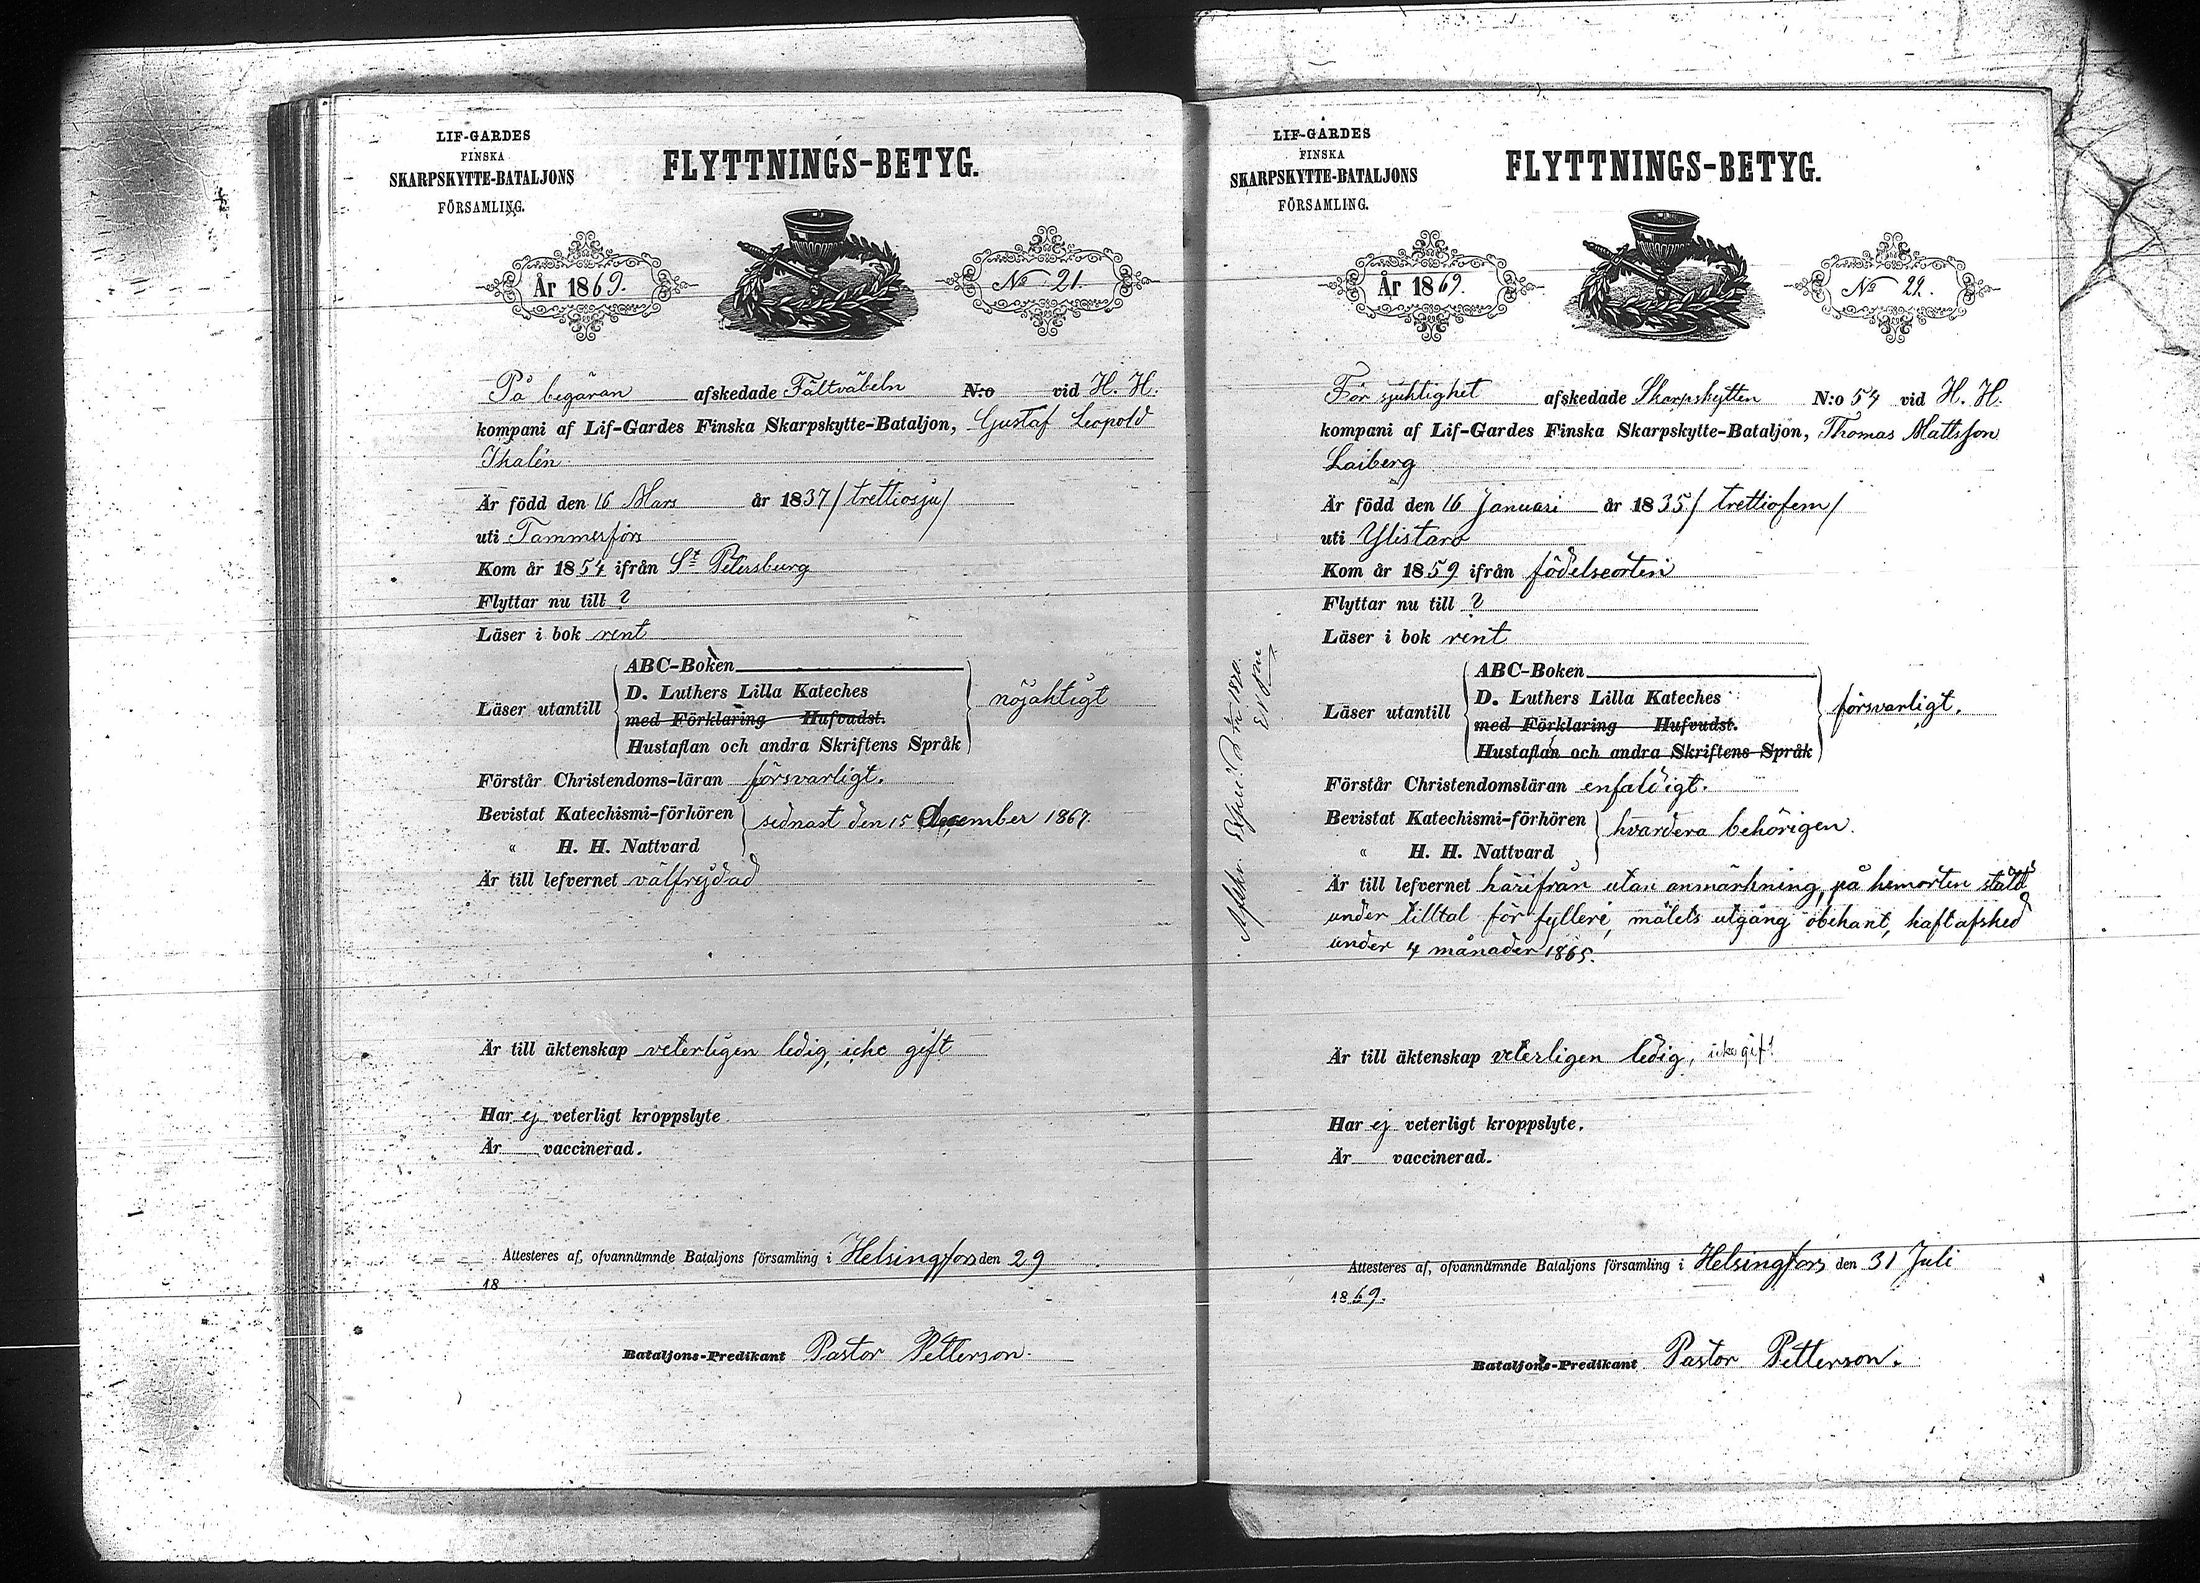 LIF-GARDES
FINSKA
SKARPSKYTTE-BATALJONS
FÖRSAMLING.
FLYTTNINGS-BETYG.
År 1869.
No 21.
På begäran afskedade Fältväbeln N:o vid H. H.
kompani af Lif-Gardes Finska Skarpskytte-Bataljon, Gustaf Leopold
Thalén
Är född den 16 Mars år 1837 / trettiosju /
uti Tammerfors
Kom år 1854 ifrån St Petersburg
Flyttar nu till ?
Läser i bok rent
Läser utantill
ABC-Boken
D. Luthers Lilla Kateches
med Förklaring Hufvudst.
Hustaflan och andra Skriftens Språk
nöjaktigt
Förstår Christendoms-läran försvarligt.
Bevistat Katechismi-förhören
" H. H. Nattvard
sednast den 15 december 1867.
Är till lefvernet välfrejdad
Är till äktenskap veterligen ledig, icke gift
Har ej veterligt kroppslyte
Är vaccinerad.
Attesteres af, ofvannämnde Bataljons församling i Helsingfors den 29
18
Bataljons-Predikant Pastor Petterson.
LIF-GARDES
FINSKA
SKARPSKYTTE-BATALJONS
FÖRSAMLING.
FLYTTNINGS-BETYG.
År 1869.
No 22.
För sjuklighet afskedade Skarpskytten N:o 54 vid H. H.
kompani af Lif-Gardes Finska Skarpskytte-Bataljon, Thomas Mattsson
Laiberg
Är född den 16 Januari år 1835 / trettiofem /
uti Ylistaro
Kom år 1859 ifrån födelseorten
Flyttar nu till ?
Läser i bok rent
Läser utantill
ABC-Boken
D. Luthers Lilla Kateches
med Förklaring Hufvudst.
Hustaflan och andra Skriftens Språk
försvarligt.
Förstår Christendomsläran enfaldigt.
Bevistat Katechismi-förhören
" H. H. Nattvard
hvardera behörigen.
Är till lefvernet härifrån utan anmärkning, på hemorten ställd
under tilltal för fylleri, målets utgång obekant, haft afsked
under 4 månader 1865.
Är till äktenskap veterligen ledig, icke gift
Har ej veterligt kroppslyte.
Är vaccinerad.
Attesteres af, ofvannämnde Bataljons församling i Helsingfors den 31 Juli
1869.
Bataljons-Predikant Pastor Petterson.